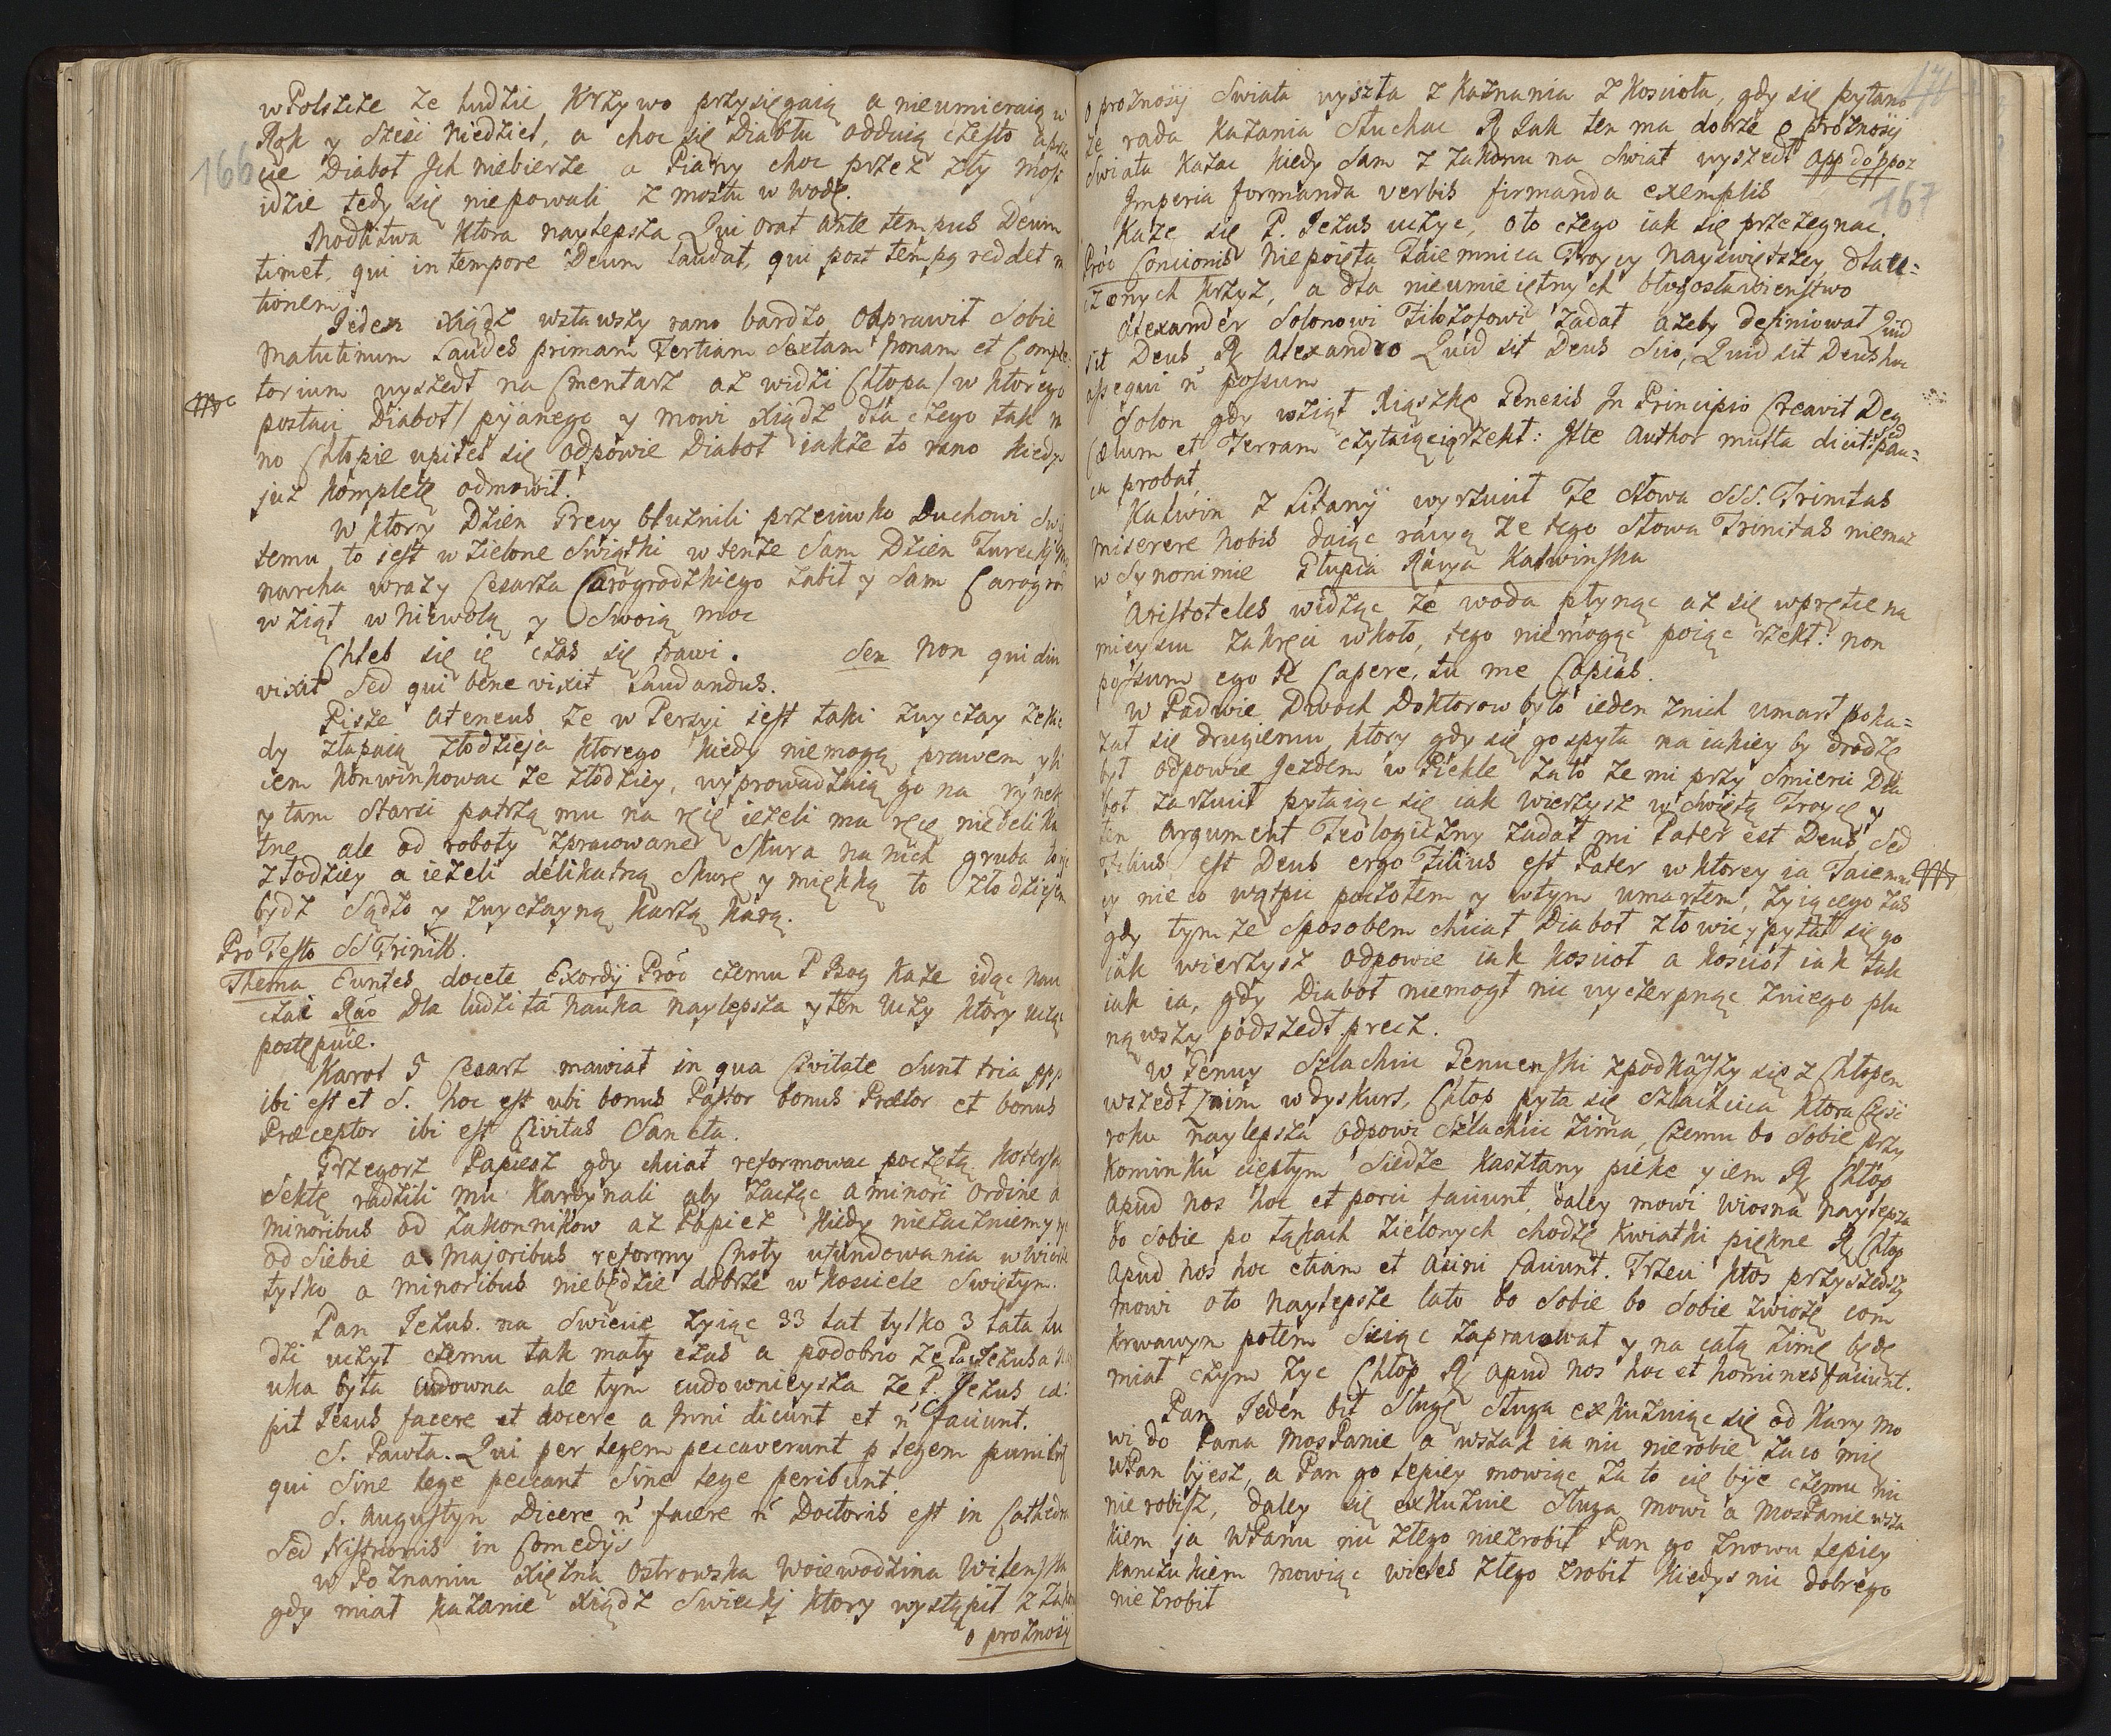 166
w Polszcze ze ludzie Krzywo przysięgaią a nieumieraią w
Rok y sześć niedziel, a choc się Diabłu odduią często
cie Diaboł Jch niebierze a Piany choc przez zły most
idzie tedy się niepowali z mostu w wodę.
Modlitwa ktora naylepsza Qui orat ante tempus Deum
timet, qui in tempore Deum laudat, qui post tempg reddet
tionem
Jeden xiądz wstawszy rano bardzo odprawił sobie
Matutinum Laudes primam Tertiam Sextam Nonam et Comple
torium wyszedł na Cmentarz aż widzi Chłopa / w ktorego
postaci Diaboł / pijanego y mowi xiądz dla czego tak
no Chłopie upiłeś się odpowie Diaboł iakże to rano kiedy
już kompletę odmowił.
W ktory Dzien Grecy bluznili przeciwko Duchowi Swię
temu to iest w zielone Swiątki w tenże Sam Dzien Turecki
narcha wrazy Cesarza Carogrodzkiego zabił y Sam Carogrod
wziął w niewolą y Swoią moc
Chleb się ie czas się trawi. Sen Non qui diu
vixit Sed qui bene vixit Laudandus.
Pisze Ateneus ze w Persyi iest taki zwyczay ze
dy złapaią złodzieja ktorego kiedy niemogą prawem
iem konwinkowac ze złodziey, wyprowadzaią go na rynek
y tam Starsi patrzą mu na ręce ieżeli ma ręce niedelika
tne ale od roboty zpracowane Skura na nich gruba to
złodziey a ieżeli delikatną Skurę y miękką to złodziejem
bydz sądzo y zwyczayną karzą karą.
Pro Festo SS Trinitt.
Thema Euntes docete Exordij Proo czemu P Bog każe idąc nau
czać Rāo Dla ludzi ta nauka naylepsza y ten uczy ktory ucząc
postępuie.
Karol 5 Cesarz mawiał in qua Civitate Sunt tria ppp
ibi est et S. hoc est ubi bonus Pastor bonus Prætor et bonus
Præceptor ibi est Civitas Sancta.
Grzegorz Papiesz gdy chciał reformowac poczętą
Sektę radzili mu Kardynali aby zacząc a minori ordine a
minoribus od zakonnikow aż Papież kiedy niezaczniemy
od siebie a majoribus reformy Cnoty ufundowania
tylko a minoribus niebędzie dobrze w kościele Swiętym.
Pan Jezus na Swiecie zyiąc 33 lat tylko 3 lata lu
dzi uczył czemu tak mały czas a podobno ze Pa Jezusa
uka była cudowna ale tym cudownieysza ze P. Jezus cæ
pit Jesus facere et docere a Inni dicunt et n faciunt.
S. Pawła. Qui per legem peccaverunt p legem
qui Sine lege peccant Sine lege peribunt.
S. Augustyn Dicere n facere n Doctoris est in Cathedra
Sed Histrionis in Comedijs
w Poznaniu xiężna Ostrowska Woiewodzina Wilenska
gdy miał kazanie xiądz Swiecki ktory wystąpił z
o proznosci
171
167
o proznosij Swiata wyszła z kaznania z Kosciola, gdy się pytano
ze rada kazania Słuchac Rz Jak ten ma dobrze o proznosij
Swiata kazac kiedy Sam z zakonu na Swiat wyszedł app do ppoz
Jmperia formanda verbis firmanda exemplis
Kaze się P. Jezus uczyc, oto czego iak się przezegnac.
Proo Concionis Niepoięta Taiemnica Troycy Nayswiętszey, dla u=
czonych krzyz, a dla nieumieiętnych błogosławienstwo
Alexander Solonowi Filozofowi zadał azeby definiował Quid
sit Deus Rz Alexandro Quid sit Deus Scio, Quid sit Deus hoc
assequi n possum
Solon gdy wziął Xiąszkę Genesis Jn Principio Creavit Deg
Cælum et Terram czytaiąc ią rzekł: Jste Author multa dicit Sed pau=
ca probat
Kalwin z Litanij wyrzucił Te słowa SSS. Trinitas
miserere nobis daiąc racyą ze tego Słowa Trinitas niemasz
w Synonimie Głupia Racya Kalwinska
Aristoteles widząc ze woda płynąc aż się wprętze na
mieyscu zakręci wkoło, tego niemogąc poiąc rzekł: non
possum ego te Capere, tu me Capias.
W Padwie Dwoch Doktorow było ieden znich umarł poka=
zał się drugiemu, ktory gdy się go spyta na iakiey by drodze
był odpowie Jezdem w Piekle za to ze mi przy Smierci Dia
boł zarzucił pytaiąc się iak wierzysz w Swiętą Troycę y
ten Argument Teologiczny zadał mi Pater est Deus, Sed
Filius est Deus ergo Filius est Pater w ktorey ia Taiemni
cy nieco wątpic począłem y wtym umarłem, zyiącego zas
gdy tymze Sposobem chciał Diaboł złowic y pytał się go
iak wierzysz odpowie iak kosciol a kosciol iak tak
iak ia, gdy Diaboł niemogł nic wyczerpnąc zniego plu
nąwszy podszedł precz.
W Genuy Szlachcic Genuenski zpodkawszy się z Chłopem
wszedł znim w dyskurs, Chłop pyta się Szlachcica ktora Część
roku naylepsza odpowi Szlachcic zima, Czemu bo Sobie przy
kominku ciepłym Siedze kasztany pieke y iem Rz Chłop
apud nos hoc et porci faciunt, daley mowi Wiosna naylepsza
bo Sobie po łąkach zielonych chodze kwiatki piękne Rz Chłop
apud nos hoc etiam et Asini faciunt. Trzeci ktos przyszedszy
mowi oto naylepsze lato bo Sobie bo Sobie zwiozę com
krwawym potem Siejąc zapracował y na całą zimę będę
miał czym zyc Chłop Rz apud nos hoc et homines faciunt.
Pan Jeden bił Sługę Sługa exkuzuiąc się od kary mo
wi do Pana MosPanie a wszak ia nic nierobie za co mię
WPan bijesz, a Pan go lepiey mowiąc za to cię bije czemu nic
nie robisz, daley się exkuzuie Sługa mowi a MosPanie wsza
kiem ja WPanu nic złego niezrobił Pan go znowu lepiey
kanczukiem mowiąc wieleś złego zrobił kiedys nic dobrego
nie zrobił